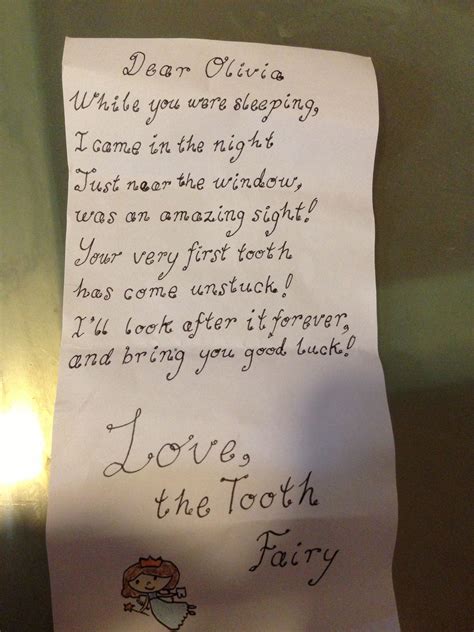 Dear Olivia
While you were sleeping,
I came in the night
Just near the window,
was an amazing sight!
Your very first tooth
has come unstuck!
I'll look after it forever,
and bring you good luck!
Love,
the Tooth
Fairy